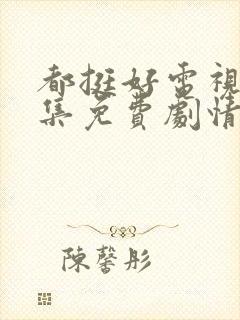 都挺好電視
集免費劇情
陳馨彤